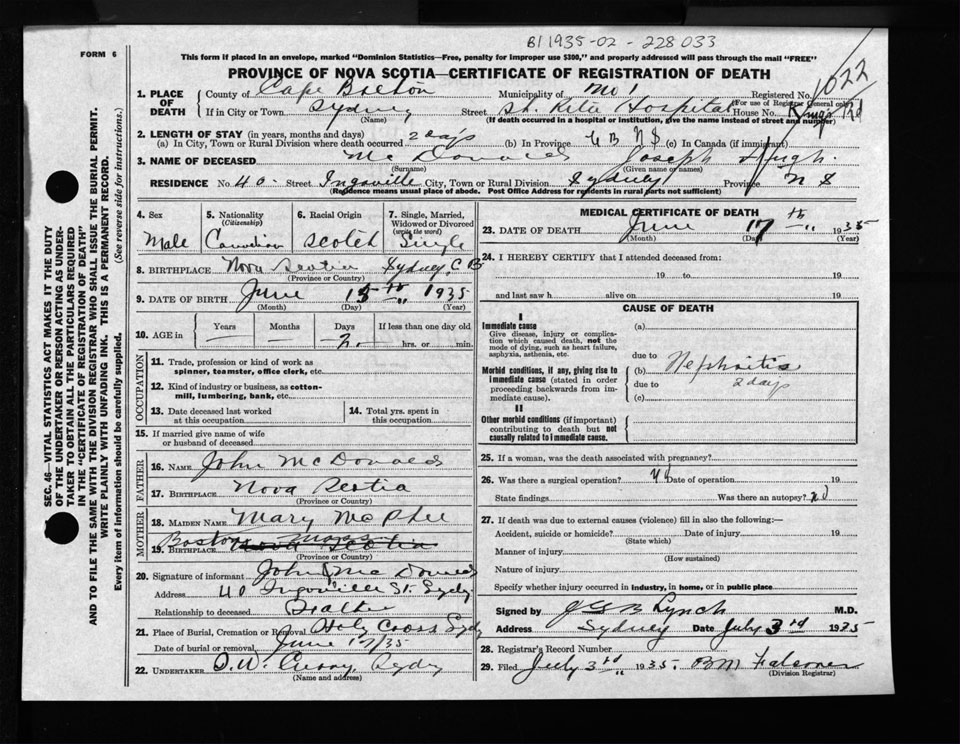 B1 1935-02-228033
FORM 6
This form if placed in an envelope, marked "Dominion Statistics—Free, penalty for improper use $300," and properly addressed will pass through the mail "FREE"
PROVINCE OF NOVA SCOTIA—CERTIFICATE OF REGISTRATION OF DEATH
1022
1. PLACE OF DEATH
County of Cape Breton Municipality of No 1 Registered No.
(For use of Registrar General only)
If in City or Town Sydney Street St. Rita Hospital House No. Kings Rd
(Name) (If death occurred in a hospital or institution, give the name instead of street and number)
2. LENGTH OF STAY (in years, months and days)
(a) In City, Town or Rural Division where death occurred 2 days (b) In Province C B N S (c) In Canada (if immigrant)
3. NAME OF DECEASED McDonald Joseph Hugh
(Surname) (Given name or names)
RESIDENCE No. 40 Street Ingoville City, Town or Rural Division Sydney Province N S
(Residence means usual place of abode. Post Office Address for residents in rural parts not sufficient)
4. Sex
Male
5. Nationality
(Citizenship)
Canadian
6. Racial Origin
Scotch
7. Single, Married, Widowed or Divorced
(write the word)
Single
8. BIRTHPLACE Nova Scotia Sydney, C B
(Province or Country)
9. DATE OF BIRTH June 15th 1935
(Month) (Day) (Year)
10. AGE in Years Months Days If less than one day old
— — 2 hrs. or min.
OCCUPATION
11. Trade, profession or kind of work as
spinner, teamster, office clerk, etc.
12. Kind of industry or business, as cotton-
mill, lumbering, bank, etc.
13. Date deceased last worked
at this occupation
14. Total yrs. spent in
this occupation
15. If married give name of wife
or husband of deceased
FATHER
16. NAME John McDonald
17. BIRTHPLACE Nova Scotia
(Province or Country)
MOTHER
18. MAIDEN NAME Mary McPhee
Boston Mass
19. BIRTHPLACE Nova Scotia
(Province or Country)
20. Signature of informant John J McDonald
Address 40 Ingoville St. Sydney
Relationship to deceased Father
21. Place of Burial, Cremation or Removal Holy Cross Sydney
Date of burial or removal June 17/35
22. UNDERTAKER O.W. Curry, Sydney
(Name and address)
MEDICAL CERTIFICATE OF DEATH
23. DATE OF DEATH June 17th 1935
(Month) (Day) (Year)
24. I HEREBY CERTIFY that I attended deceased from:
19 to 19
and last saw h alive on 19
CAUSE OF DEATH
I
Immediate cause
Give disease, injury or complica-
tion which caused death, not the
mode of dying, such as heart failure,
asphyxia, asthenia, etc.
(a)
due to
Morbid conditions, if any, giving rise to
immediate cause (stated in order
proceeding backwards from im-
mediate cause).
(b) Nephritis
due to 2 days
(c)
II
Other morbid conditions (if important)
contributing to death but not
causally related to immediate cause.
25. If a woman, was the death associated with pregnancy?
26. Was there a surgical operation? No Date of operation 19
State findings Was there an autopsy? no
27. If death was due to external causes (violence) fill in also the following:—
Accident, suicide or homicide? Date of injury 19
(State which)
Manner of injury
(How sustained)
Nature of injury
Specify whether injury occurred in industry, in home, or in public place
Signed by Lynch M.D.
Address Sydney Date July 3rd 1935
28. Registrar's Record Number
29. Filed July 3rd 1935. B M Falconer
(Division Registrar)
SEC. 46—VITAL STATISTICS ACT MAKES IT THE DUTY
OF THE UNDERTAKER OR PERSON ACTING AS UNDER-
TAKER TO OBTAIN ALL THE PARTICULARS REQUIRED
IN THE "CERTIFICATE OF REGISTRATION OF DEATH"
AND TO FILE THE SAME WITH THE DIVISION REGISTRAR WHO SHALL ISSUE THE BURIAL PERMIT.
WRITE PLAINLY WITH UNFADING INK. THIS IS A PERMANENT RECORD.
Every item of information should be carefully supplied. (See reverse side for instructions.)